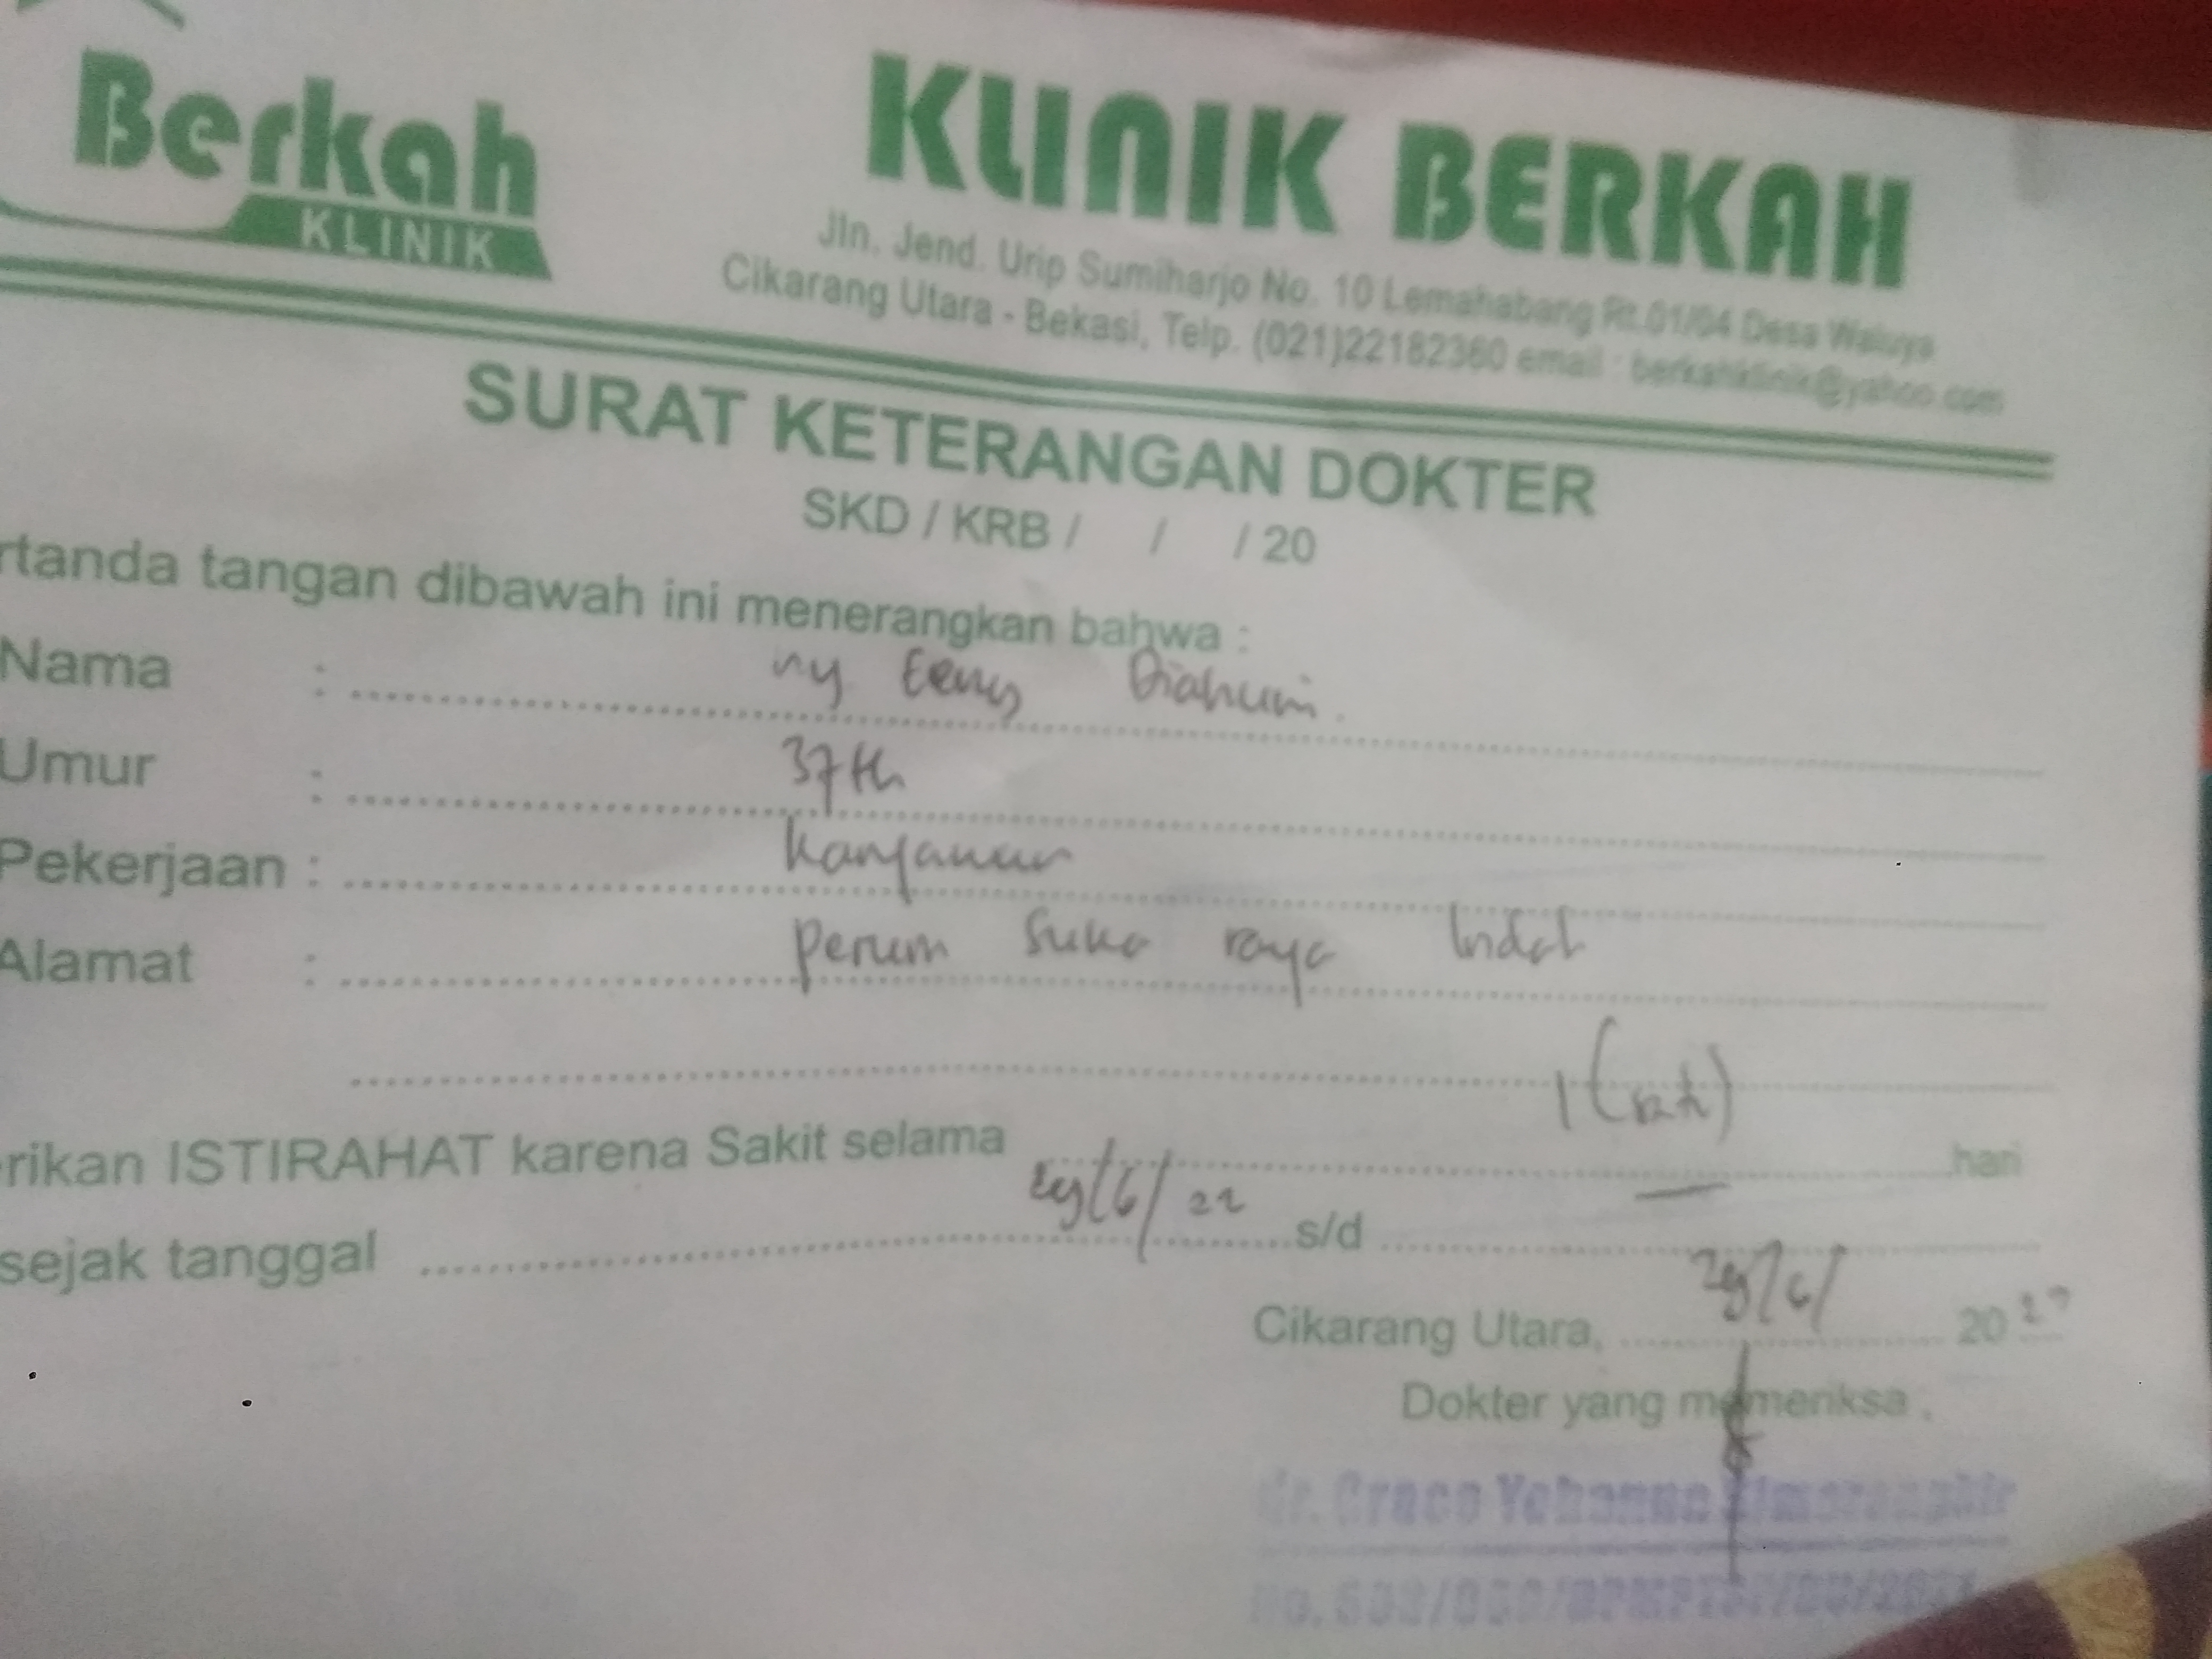 Berkah
KLINIK
KLINIK BERKAH
Jln. Jend. Urip Sumiharjo No. 10 Lemahabang Rt.01/04 Desa Waluya
Cikarang Utara - Bekasi, Telp. (021)22182360 email : berkahklinik@yahoo.com
SURAT KETERANGAN DOKTER
SKD / KRB / / / 20
rtanda tangan dibawah ini menerangkan bahwa :
Nama : ny
Umur : 37 th
Pekerjaan : Karyawan
Alamat : perum Suka raya Indah
rikan ISTIRAHAT karena Sakit selama 1 (satu) hari
sejak tanggal /6/22 s/d —
Cikarang Utara, /6/ 20
Dokter yang memeriksa,
dr. Grace Yohanna